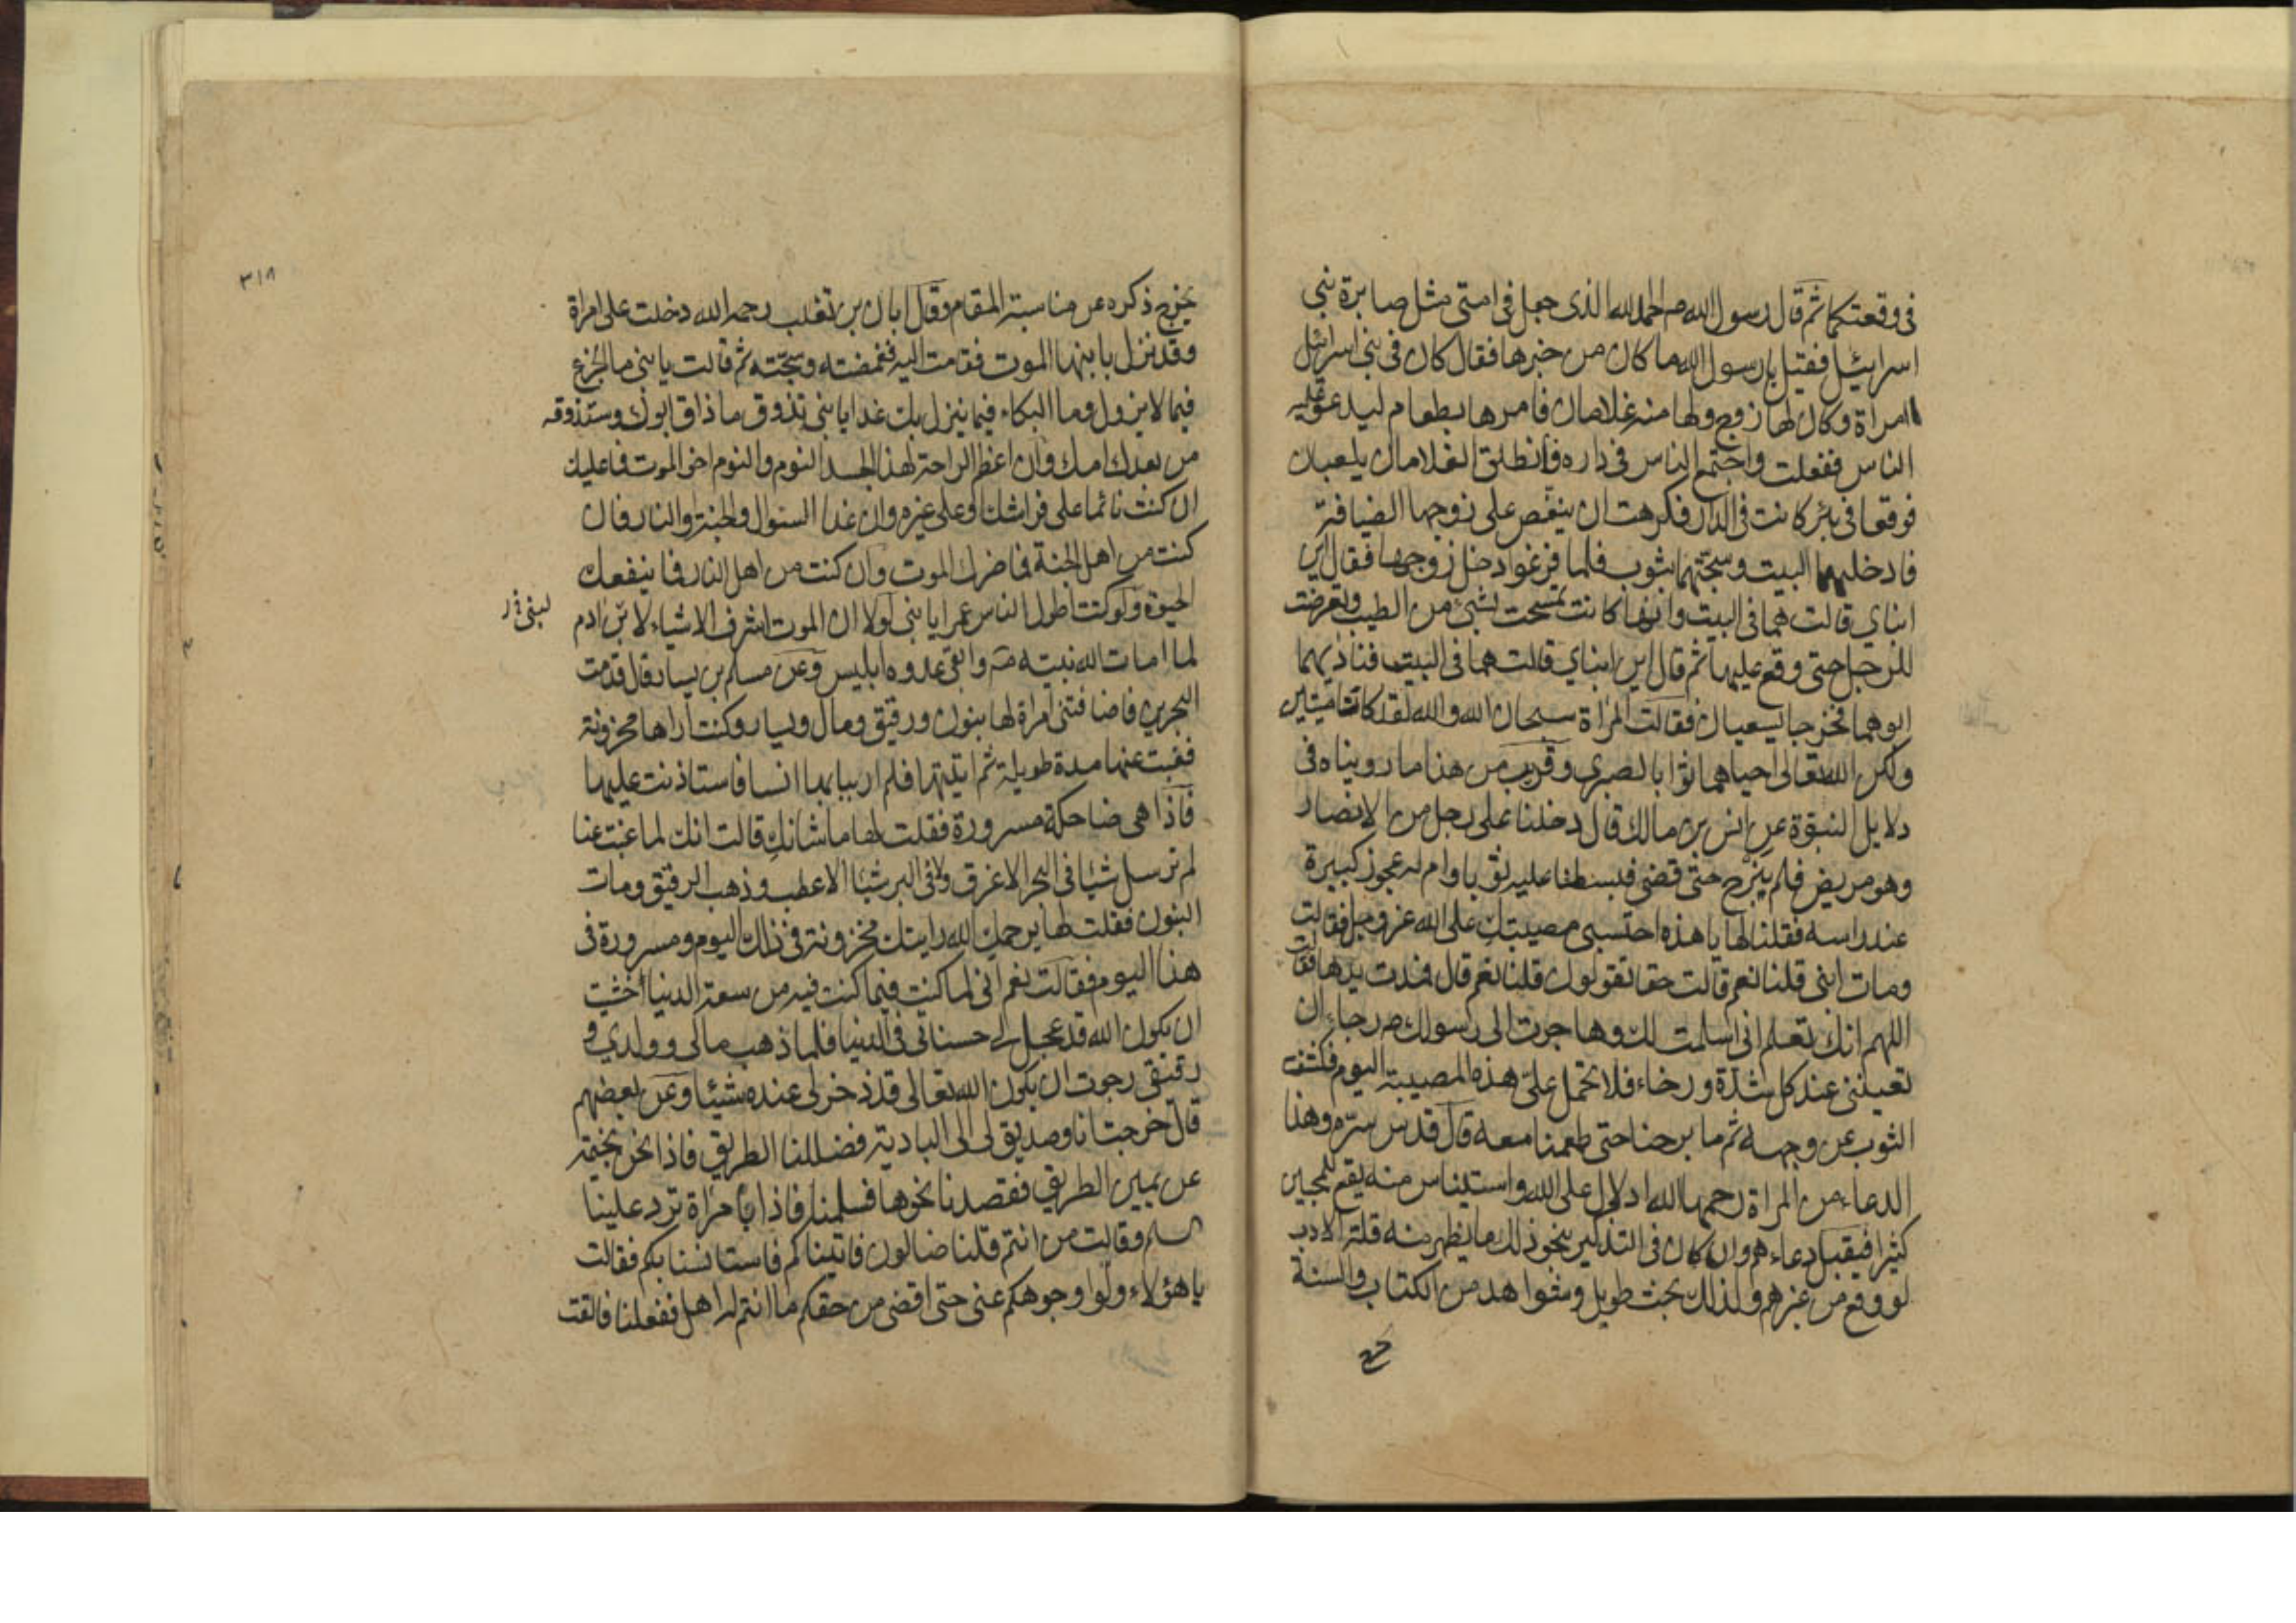 في وقعتكما ثم قال رسول الله ص الحمد لله الذى جعل فى امتى مثل صابرة بني
اسرائيل فقيل يا رسول الله ما كان من خبرها فقال كان فى بنى اسرائيل
امراة وكان لها زوج ولها منه غلامان فامرها بطعام ليدعو عليه
الناس ففعلت واجتمع الناس فى داره وانطلق الغلامان يلعبان
فوقعا فى بئر كانت فى الدار فكرهت ان ينغص على زوجها الضيافة
فادخلتهما البيت وسجتهما بثوب فلما فرغوا دخل زوجها فقال اين
ابناي قالت هما فى البيت وانها كانت تمسحت بشئ من الطيب وتعرضت
للرجل حتى وقع عليها ثم قال اين ابناي قالت هما فى البيت فناديهما
ابوهما فخرجا يسعيان فقالت المراة سبحان الله والله لقد كانا ميتين
ولكن الله تعالى احياهما ثوابا لصبرى وقريب من هذا ما رويناه فى
دلايل النبوة عن انس بن مالك قال دخلنا على رجل من الانصار
وهو مريض فلم يبرح حتى قضى فبسطنا عليه ثوبا وام له عجوز كبيرة
عند راسه فقلنا لها يا هذه احتسبي مصيبتك على الله عز وجل فقالت
ومات ابنى قلنا نعم قالت حقا تقولون قلنا نعم قال فمدت يدها فقالت
اللهم انك تعلم انى اسلمت لك وهاجرت الى رسولك ص رجاء ان
تعينني عند كل شدة ورخاء فلا تحمل علىّ هذه المصيبة اليوم فكشفت
الثوب عن وجهه ثم ما برحنا حتى طعمنا معه قال قدس سره وهذا
الدعاء من المراة رحمها الله ادلال على الله واستيناس منه يقع للمحبين
كثيرا فيقبل دعاءهم وان كان فى التذكير بنحو ذلك ما يظهر منه قلة الادب
لو وقع من غيرهم ولذلك بحث طويل وشواهد من الكتاب والسنة
يخرج
٣١٨
يخرج ذكره عن مناسبة المقام وقال ابان بن تغلب رحمه الله دخلت على امراة
وقد نزل بابنها الموت فقامت اليه فغمضته وسجته ثم قالت يا بنى ما الجزع
فيما لا يزول وما البكاء فيما ينزل بك غدا يا بنى تذوق ما ذاق ابوك وستذوقه
من بعدك امك وان اعظم الراحة لهذا الجسد النوم والنوم اخى الموت فما عليك
ان كنت نائما على فراشك او على غيره وان غدا السئوال والجنة والنار فان
كنت من اهل الجنة فما ضرك الموت وان كنت من اهل النار فما ينفعك
الحيوة ولو كنت اطول الناس عمرا يا بنى لولا ان الموت اشرف الاشياء لابن ادم
لما امات الله نبيه ص وابقى عدوه ابليس وعن مسلم بن يسار قال قدمت
البحرين فاضافتنى امراة لها بنون ورقيق ومال ويسار وكنت اراها محزونة
فغبت عنها مدة طويلة ثم اتيتها فلم ار ببابها انسا فاستاذنت عليها
فاذا هى ضاحكة مسرورة فقلت لها ما شانك قالت انك لما غبت عنا
لم نرسل شيئا فى البحر الا غرق ولا فى البر شيئا الا عطب وذهب الرقيق ومات
البنون فقلت لها يرحمك الله رايتك محزونة فى ذلك اليوم ومسرورة فى
هذا اليوم فقالت نعم انى لما كنت فيما كنت فيه من سعة الدنيا خشيت
ان يكون الله قد عجل لى حسناتى فى الدنيا فلما ذهب مالى وولدي و
رقيقى رجوت ان يكون الله تعالى قد ذخر لى عنده شيئا وعن بعضهم
قال خرجت انا وصديق لى الى البادية فضللنا الطريق فاذا نحن بخيمة
عن يمين الطريق فقصدنا نحوها فسلمنا فاذا بامراة ترد علينا
السلم وقالت من انتم قلنا ضالون فاتيناكم فاستانسنا بكم فقالت
يا هؤلاء ولوا وجوهكم عنى حتى اقضى من حقكم ما انتم له اهل ففعلنا فالقت